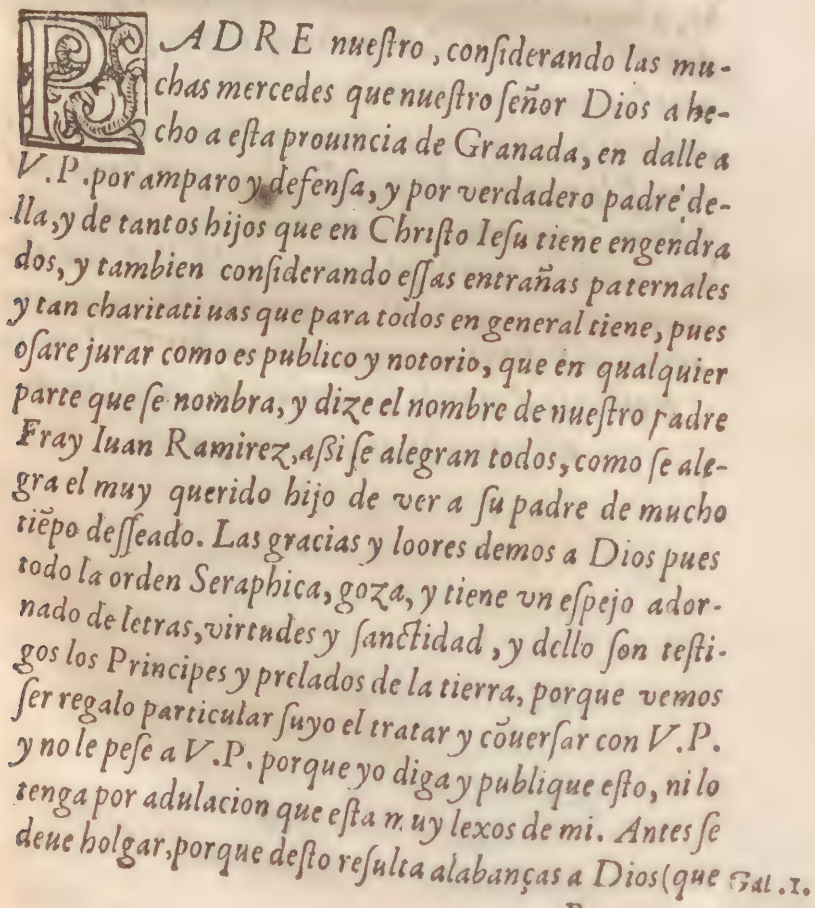 PADRE nueſtro, conſiderando las mu-
chas mercedes que nueſtro ſeñor Dios a he-
cho a eſta prouincia de Granada, en dalle a
V.P. por amparo y defenſa, y por verdadero padre de-
lla, y de tantos hijos que en Chriſto Ieſu tiene engendra
dos, y tambien conſiderando eſſas entrañas paternales
y tan charitatiuas que para todos en general tiene, pues
oſare jurar como es publico y notorio, que en qualquier
parte que ſe nombra, y dize el nombre de nueſtro padre
Fray Iuan Ramirez, aſsi ſe alegran todos, como ſe ale-
gra el muy querido hijo de ver a ſu padre de mucho
tiẽpo deſſeado. Las gracias y loores demos a Dios pues
todo la orden Seraphica, goza, y tiene vn eſpejo ador-
nado de letras, virtudes y ſanctidad, y dello ſon teſti-
gos los Principes y prelados de la tierra, porque vemos
ſer regalo particular ſuyo el tratar y cõuerſar con V.P.
y no le peſe a V.P. porque yo diga y publique eſto, ni lo
tenga por adulacion que eſta muy lexos de mi. Antes ſe
deue holgar, porque deſto reſulta alabanças a Dios (que Gal.1.